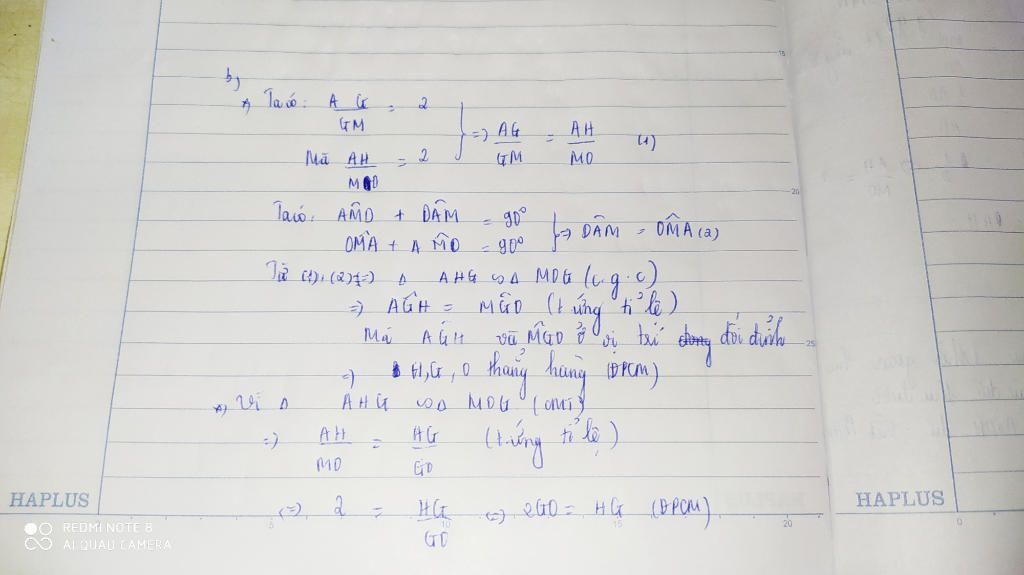 b,
*) Ta có: AG/GM = 2
Mà AH/MO = 2
=> AG/GM = AH/MO (1)
Ta có: AM̂D + DÂM = 90°
OM̂A + AM̂D = 90°
=> DÂM = OM̂A (2)
Từ (1), (2) => Δ AHG ∽ Δ MOG (c.g.c)
=> AĜH = MĜO (t. ứng tỉ lệ)
Mà AĜH và MĜO ở vị trí đối đỉnh
=> H, G, O thẳng hàng (ĐPCM)
*) Vì Δ AHG ∽ Δ MOG (cmt)
=> AH/MO = HG/GO (t. ứng tỉ lệ)
<=> 2 = HG/GO <=> 2GO = HG (ĐPCM)
HAPLUS
HAPLUS
REDMI NOTE 8
AI QUAD CAMERA
15
20
25
5
10
15
20
0